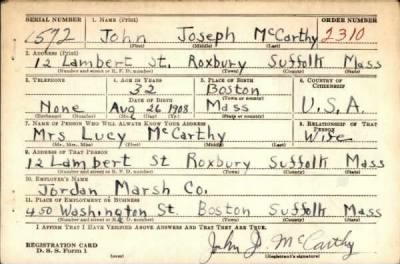 SERIAL NUMBER 1. NAME (Print) ORDER NUMBER
1592 John Joseph McCarthy 2310
(First) (Middle) (Last)
2. ADDRESS (Print)
12 Lambert St. Roxbury Suffolk Mass
(Number and street or R. F. D. number) (Town) (County) (State)
3. TELEPHONE 4. AGE IN YEARS 5. PLACE OF BIRTH 6. COUNTRY OF CITIZENSHIP
32 Boston
DATE OF BIRTH (Town or county)
None Aug 26 1908 Mass U.S.A.
(Exchange) (Number) (Mo.) (Day) (Yr.) (State or country)
7. NAME OF PERSON WHO WILL ALWAYS KNOW YOUR ADDRESS 8. RELATIONSHIP OF THAT PERSON
Mrs Lucy McCarthy Wife
(Mr., Mrs., Miss) (First) (Middle) (Last)
9. ADDRESS OF THAT PERSON
12 Lambert St Roxbury Suffolk Mass
(Number and street or R. F. D. number) (Town) (County) (State)
10. EMPLOYER'S NAME
Jordan Marsh Co.
11. PLACE OF EMPLOYMENT OR BUSINESS
450 Washington St. Boston Suffolk Mass
(Number and street or R. F. D. number) (Town) (County) (State)
I AFFIRM THAT I HAVE VERIFIED ABOVE ANSWERS AND THAT THEY ARE TRUE.
John J. McCarthy
REGISTRATION CARD
D. S. S. Form 1 (over) (Registrant's signature)